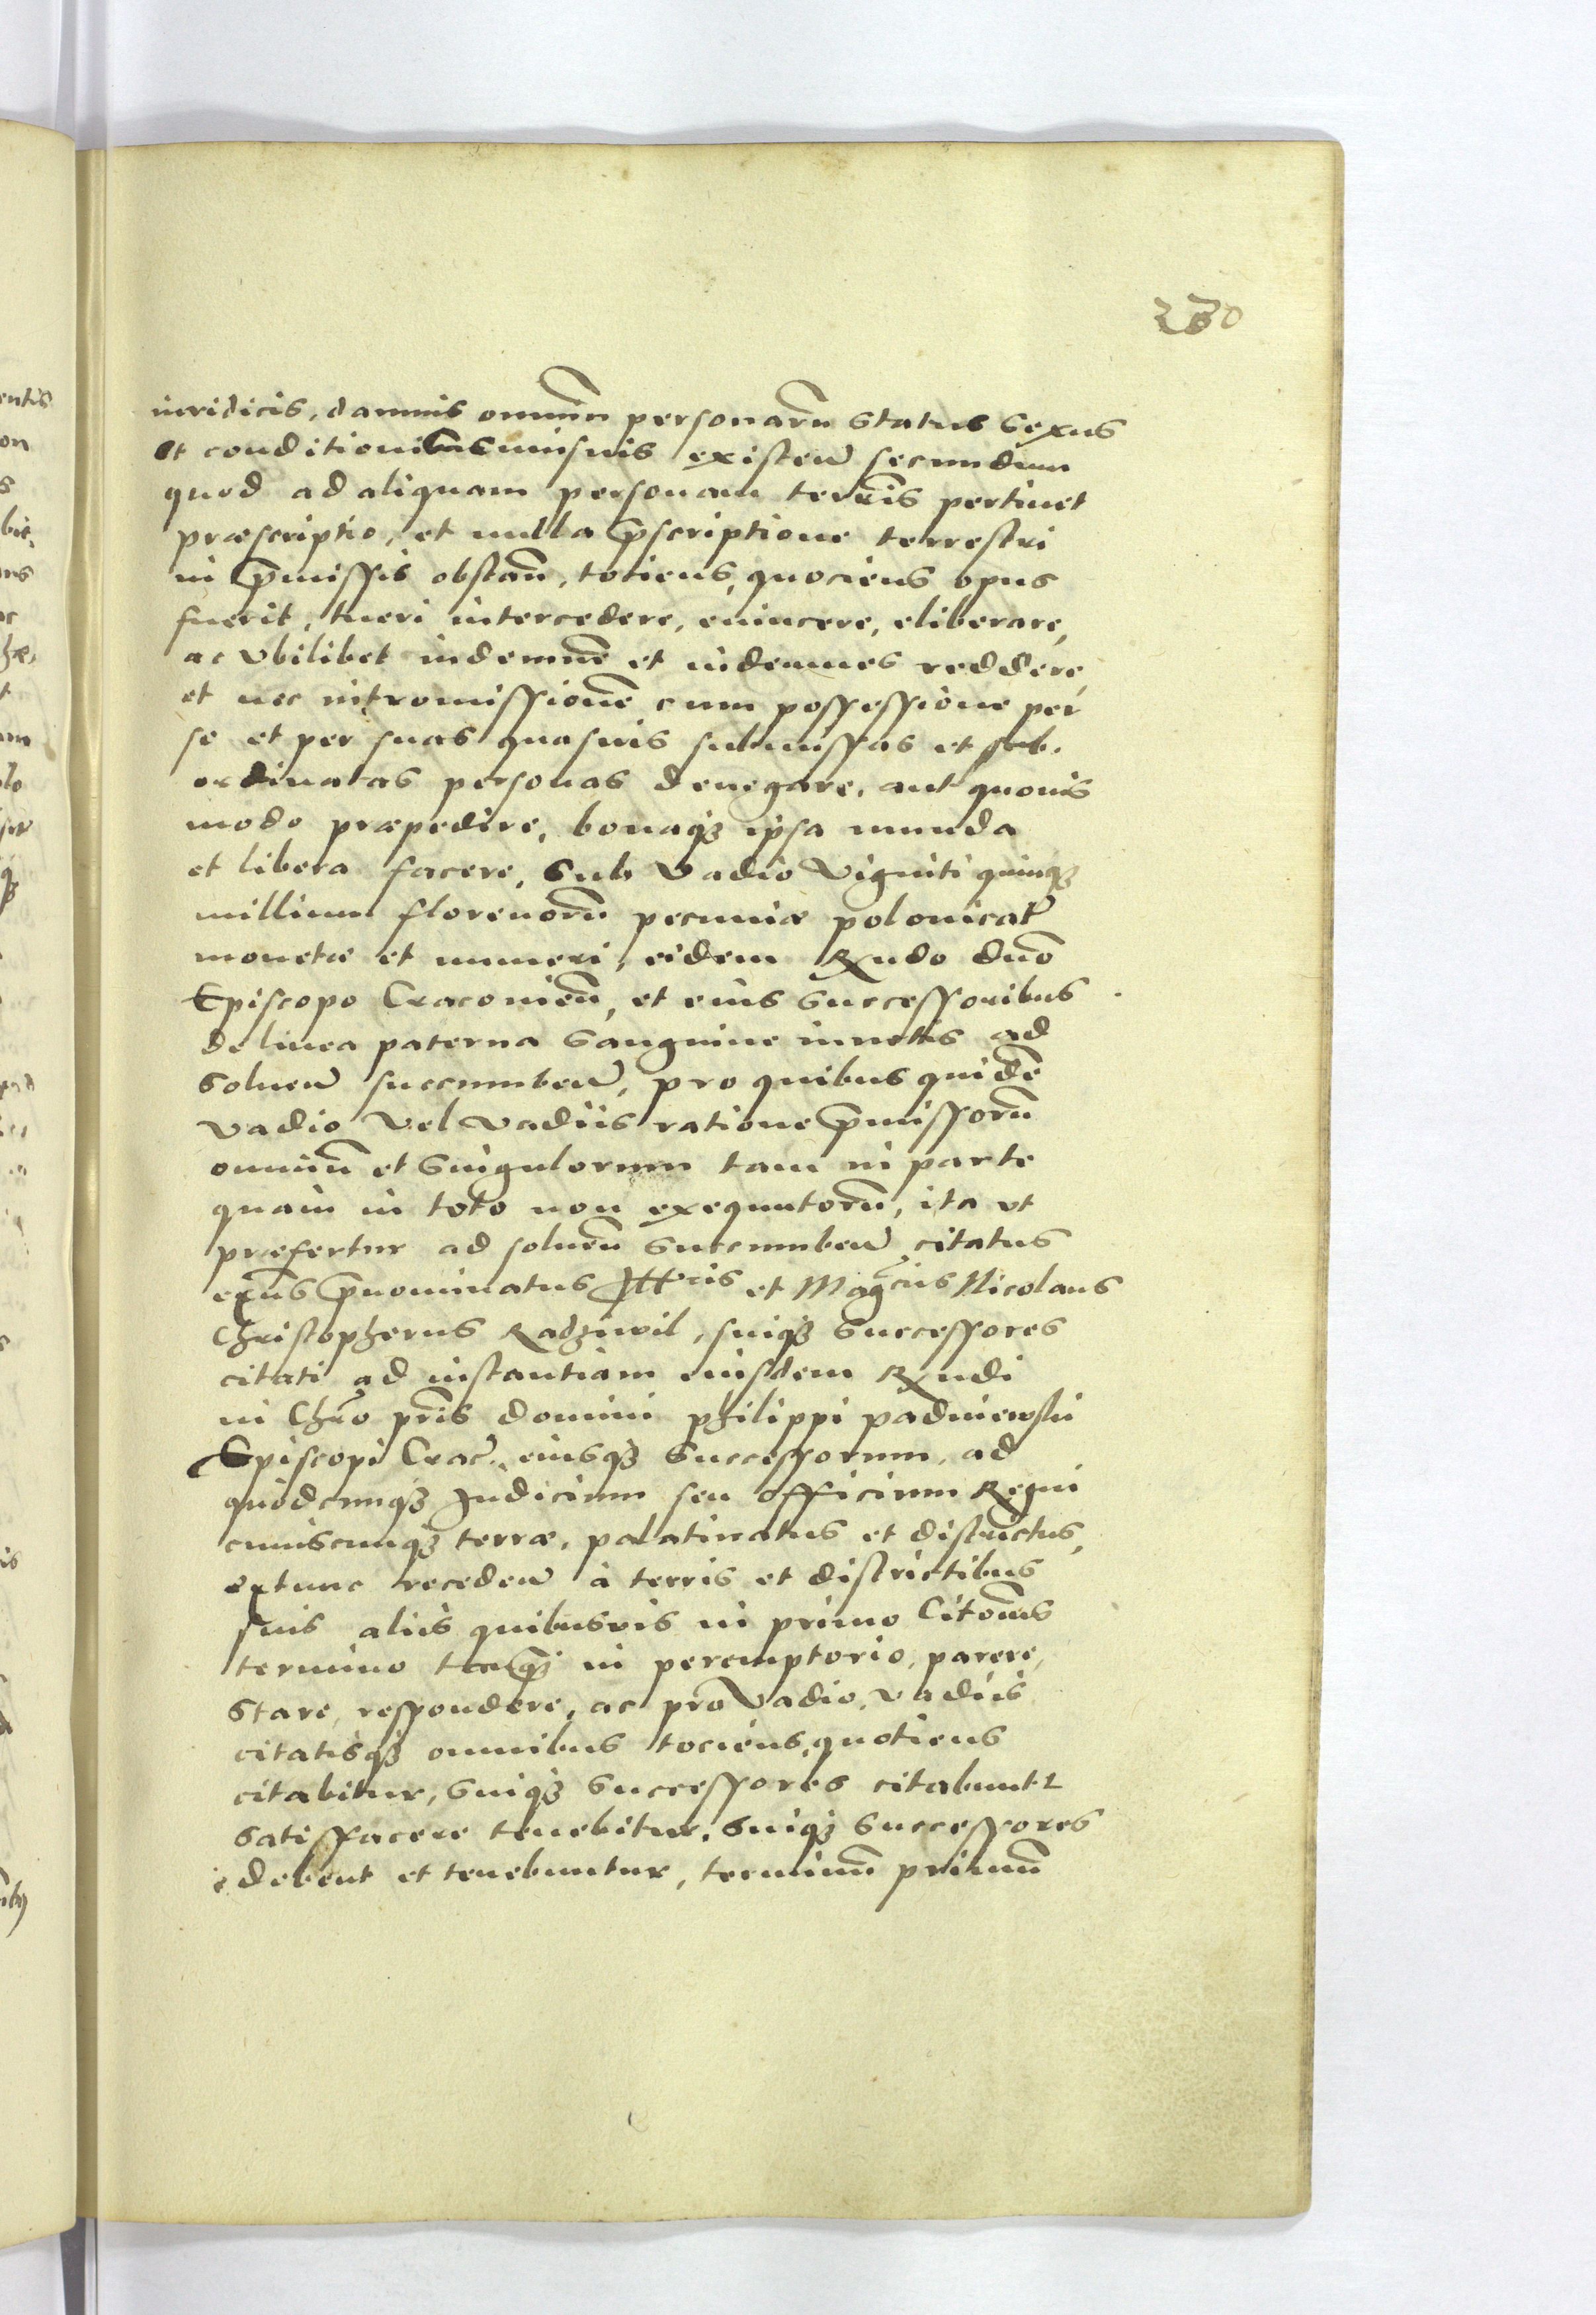 iuridicis, damnis omniũ personarũ status sexus
et conditionis cuiusuis existeñ secundum
quod ad aliquam personam terrẽis pertinet
præscriptio, et nulla p̃scriptione terrestri
in p̃missis obstañ, totiens, quociens opus
fuerit, tueri intercedere, euincere, eliberare,
ac vbilibet indemnẽ et indemnes reddere,
et nec intromissionẽ cum possessione per
se et per suas quasuis submissas et sub-
ordinatas personas denegare, aut quouis
modo præpedire, bonaqȝ ipsa munda
et libera facere, sub vadio viginti quinqȝ
millium florenorũ pecuniæ polonicał
monetæ et numeri, eidem Rndo dño
Episcopo Cracouieñ, et eius successoribus
de linea paterna sanguine iunctis ad
solueñ succumbeñ, pro quibus quidẽ
vadio vel vadiis ratione p̃missorũ
omniũ et singulorum tam in parte
quam in toto non exequutorũ, ita vt
præfertur ad solueñ succumbeñ citatus
exũs p̃nominatus Illris et Magcus Nicolaus
Christopherus Radziwil, suiqȝ successores
citati ad instantiam eiusdem Rndi
in Chro pris domini philippi padniewski
Episcopi Crac̃. eiusqȝ successorum, ad
quodcunqȝ Judicium seu officium Regni
cuiuscunqȝ terræ, palatinatus et districtus,
extunc recedeñ à terris et districtibus
suis aliis quibusuis in primo Citonis
termino tanqȝ in peremptorio, parere,
stare, respondere, ac pro vadio, vadiis
citatisqȝ omnibus tociens, quotiens
citabitur, suiqȝ successores citabuntr
satisfacere tenebitur, suiqȝ successores
debent et tenebuntur, terminũ primũ